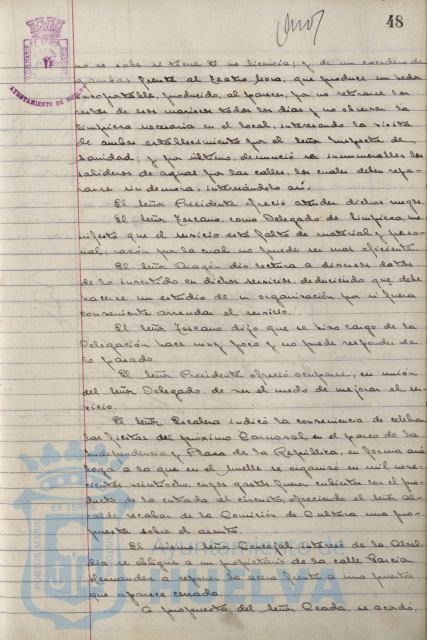 48
AYUNTAMIENTO DE HUELVA
no se sabe si tiene o no licencia; y de un cocedero de
gambas frente al Teatro Mora, que produce un hedor
insoportable, producido, al parecer, por no retirarse los
restos de esos mariscos todos los dias y no observar la
limpieza necesaria en el local, interesando la visita
de ambos establecimientos por el Señor Inspector de
Sanidad; y por último, denunció ser innumerables los
salideros de aguas por las calles, los cuales deben repa-
rarse sin demora, interesándolo así.
El Señor Presidente ofreció atender dichos ruegos.
El Señor Toscano, como Delegado de Limpieza, ma-
nifestó que el servicio está falto de material y perso-
nal, razón por la cual no puede ser mas eficiente.
El Señor Aragón dió lectura a diversos datos
de lo invertido en dichos servicios, deduciendo que debe
hacerse un estudio de su organización por si fuera
conveniente arrendar el servicio.
El Señor Toscano dijo que se hizo cargo de la
Delegación hace muy poco y no puede responder de
lo pasado.
El Señor Presidente ofreció ocuparse, en unión
del Señor Delegado, de ver el modo de mejorar el ser-
vicio.
El Señor Escalera indicó la conveniencia de celebrar
las fiestas del próximo Carnaval en el paseo de la
Independencia y Plaza de la República, en forma aná-
loga a la que en el Muelle se organizó en mil nove-
cientos veintiocho, cuyos gastos fueron cubiertos con el pro-
ducto de la entrada al circuito, ofreciendo el Señor Al-
calde recabar de la Comisión de Cultura una pro-
puesta sobre el asunto.
El mismo Señor Concejal interesó de la Alcal-
día se obligue a un propietario de la calle García
Hernandez a reponer la acera frente a una puerta
que aparece cerrada.
A propuesta del Señor Ceada, se acordó,
Ayuntamiento de
HUELVA